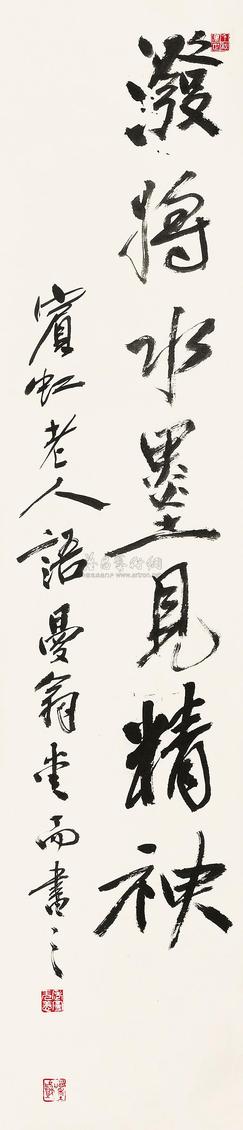 潑將水墨見精神
賓虹老人語曼翁書而書之